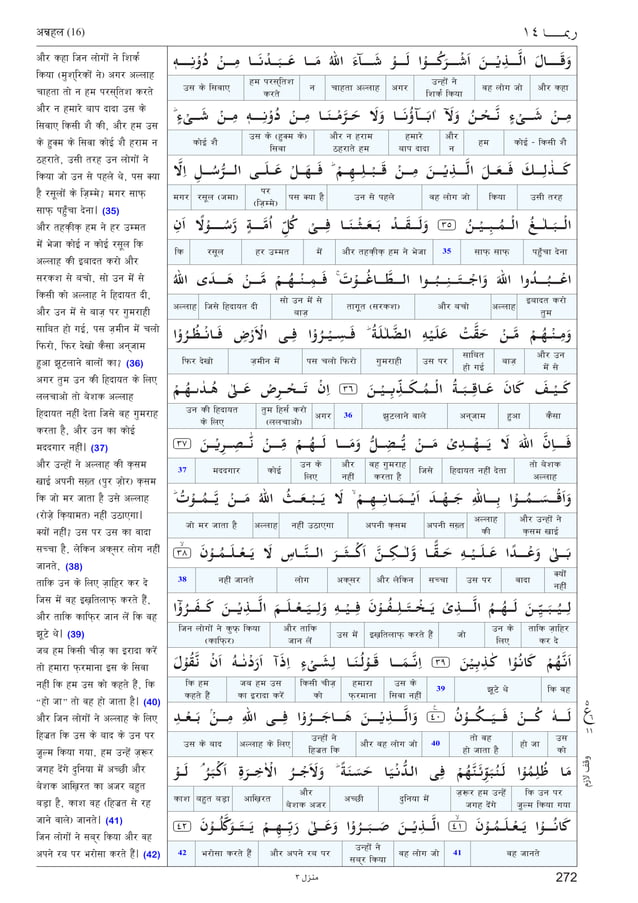 अन्नहल (16)
ربمـا ١٤
और कहा जिन लोगों ने शिर्क
किया (मुश्रिकों ने) अगर अल्लाह
चाहता तो न हम परस्तिश करते
और न हमारे बाप दादा उस के
सिवाए किसी शै की, और हम उस
के हुक्म के सिवा कोई शै हराम न
ठहराते, उसी तरह उन लोगों ने
किया जो उन से पहले थे, पस क्या
है रसूलों के ज़िम्मे? मगर साफ़
साफ़ पहुँचा देना| (35)
और तहक़ीक़ हम ने हर उम्मत
में भेजा कोई न कोई रसूल कि
अल्लाह की इबादत करो और
सरकश से बचो, सो उन में से
किसी को अल्लाह ने हिदायत दी,
और उन में से बाज़ पर गुमराही
साबित हो गई, पस ज़मीन में चलो
फिरो, फिर देखो कैसा अन्जाम
हुआ झुटलाने वालों का? (36)
अगर तुम उन की हिदायत के लिए
ललचाओ तो बेशक अल्लाह
हिदायत नहीं देता जिसे वह गुमराह
करता है, और उन का कोई
मददगार नहीं| (37)
और उन्हों ने अल्लाह की क़सम
खाई अपनी सख़्त (पुर ज़ोर) क़सम
कि जो मर जाता है उसे अल्लाह
(रोज़े क़ियामत) नहीं उठाएगा|
क्यों नहीं? उस पर उस का वादा
सच्चा है, लेकिन अक्सर लोग नहीं
जानते, (38)
ताकि उन के लिए ज़ाहिर कर दे
जिस में वह इख़तिलाफ़ करते हैं,
और ताकि काफ़िर जान लें कि वह
झूटे थे| (39)
जब हम किसी चीज़ का इरादा करें
तो हमारा फ़रमाना इस के सिवा
नहीं कि हम उस को कहते हैं, कि
“हो जा” तो वह हो जाता है| (40)
और जिन लोगों ने अल्लाह के लिए
हिज्रत की उस के बाद के उन पर
ज़ुल्म किया गया, हम उन्हें ज़रूर
जगह देंगे दुनिया में अच्छी और
बेशक आख़िरत का अजर बहुत
बड़ा है, काश वह (हिज्रत से रह
जाने वाले) जानते| (41)
जिन लोगों ने सब्र किया और वह
अपने रब पर भरोसा करते हैं| (42)
وَقَالَ الَّذِيْنَ اَشْرَكُوْا لَوْ شَآءَ اللّٰهُ مَا عَبَدْنَا مِنْ دُوْنِهٖ
उस के सिवाए | हम परस्तिश करते | न | चाहता अल्लाह | अगर | उन्हों ने शिर्क किया | वह लोग जो | और कहा
مِنْ شَيْءٍ نَّحْنُ وَلَآ اٰبَآؤُنَا وَلَا حَرَّمْنَا مِنْ دُوْنِهٖ مِنْ شَيْءٍ ؕ
कोई शै | उस के (हुक्म के) सिवा | और न हराम ठहराते हम | हमारे बाप दादा | और न | हम | कोई - किसी शै
كَذٰلِكَ فَعَلَ الَّذِيْنَ مِنْ قَبْلِهِمْ ۚ فَهَلْ عَلَى الرُّسُلِ اِلَّا
मगर | रसूल (जमा) | पर (ज़िम्मे) | पस क्या है | उन से पहले | वह लोग जो | किया | उसी तरह
الْبَلٰغُ الْمُبِيْنُ ٣٥ وَلَقَدْ بَعَثْنَا فِيْ كُلِّ اُمَّةٍ رَّسُوْلًا اَنِ
कि | रसूल | हर उम्मत | में | और तहक़ीक़ हम ने भेजा | 35 | साफ़ साफ़ | पहुँचा देना
اعْبُدُوا اللّٰهَ وَاجْتَنِبُوا الطَّاغُوْتَ ۚ فَمِنْهُمْ مَّنْ هَدَى اللّٰهُ
अल्लाह | जिसे हिदायत दी | सो उन में से बाज़ | तागूत (सरकश) | और बचो | अल्लाह | इबादत करो तुम
وَمِنْهُمْ مَّنْ حَقَّتْ عَلَيْهِ الضَّلٰلَةُ ؕ فَسِيْرُوْا فِي الْاَرْضِ فَانْظُرُوْا
फिर देखो | ज़मीन में | पस चलो फिरो | गुमराही | उस पर | साबित हो गई | बाज़ | और उन में से
كَيْفَ كَانَ عَاقِبَةُ الْمُكَذِّبِيْنَ ٣٦ اِنْ تَحْرِصْ عَلٰى هُدٰىهُمْ
उन की हिदायत के लिए | तुम हिर्स करो (ललचाओ) | अगर | 36 | झुटलाने वाले | अन्जाम | हुआ | कैसा
فَاِنَّ اللّٰهَ لَا يَهْدِيْ مَنْ يُّضِلُّ وَمَا لَهُمْ مِّنْ نّٰصِرِيْنَ ٣٧
37 | मददगार | कोई | उन के लिए | और नहीं | वह गुमराह करता है | जिसे | हिदायत नहीं देता | तो बेशक अल्लाह
وَاَقْسَمُوْا بِاللّٰهِ جَهْدَ اَيْمَانِهِمْ ۙ لَا يَبْعَثُ اللّٰهُ مَنْ يَّمُوْتُ ؕ
जो मर जाता है | अल्लाह | नहीं उठाएगा | अपनी क़सम | अपनी सख़्त | अल्लाह की | और उन्हों ने क़सम खाई
بَلٰى وَعْدًا عَلَيْهِ حَقًّا وَّلٰكِنَّ اَكْثَرَ النَّاسِ لَا يَعْلَمُوْنَ ٣٨
38 | नहीं जानते | लोग | अक्सर | और लेकिन | सच्चा | उस पर | वादा | क्यों नहीं
لِيُبَيِّنَ لَهُمُ الَّذِيْ يَخْتَلِفُوْنَ فِيْهِ وَلِيَعْلَمَ الَّذِيْنَ كَفَرُوْٓا
जिन लोगों ने कुफ़्र किया (काफ़िर) | और ताकि जान लें | उस में | इख़तिलाफ़ करते हैं | जो | उन के लिए | ताकि ज़ाहिर कर दे
اَنَّهُمْ كَانُوْا كٰذِبِيْنَ ٣٩ اِنَّمَا قَوْلُنَا لِشَيْءٍ اِذَآ اَرَدْنٰهُ اَنْ نَّقُوْلَ
कि हम कहते हैं | जब हम उस का इरादा करें | किसी चीज़ को | हमारा फ़रमाना | उस के सिवा नहीं | 39 | झूटे थे | कि वह
لَهٗ كُنْ فَيَكُوْنُ ٤٠ وَالَّذِيْنَ هَاجَرُوْا فِي اللّٰهِ مِنْۢ بَعْدِ
उस के बाद | अल्लाह के लिए | उन्हों ने हिज्रत कि | और वह लोग जो | 40 | तो वह हो जाता है | हो जा | उस को
مَا ظُلِمُوْا لَنُبَوِّئَنَّهُمْ فِي الدُّنْيَا حَسَنَةً ؕ وَلَاَجْرُ الْاٰخِرَةِ اَكْبَرُ ۘ لَوْ
काश | बहुत बड़ा | आख़िरत | और बेशक अजर | अच्छी | दुनिया में | ज़रूर हम उन्हें जगह देंगे | कि उन पर ज़ुल्म किया गया
كَانُوْا يَعْلَمُوْنَ ٤١ الَّذِيْنَ صَبَرُوْا وَعَلٰى رَبِّهِمْ يَتَوَكَّلُوْنَ ٤٢
42 | भरोसा करते हैं | और अपने रब पर | उन्हों ने सब्र किया | वह लोग जो | 41 | वह जानते
ع
١١
وقف لازم
منزل ٣
272